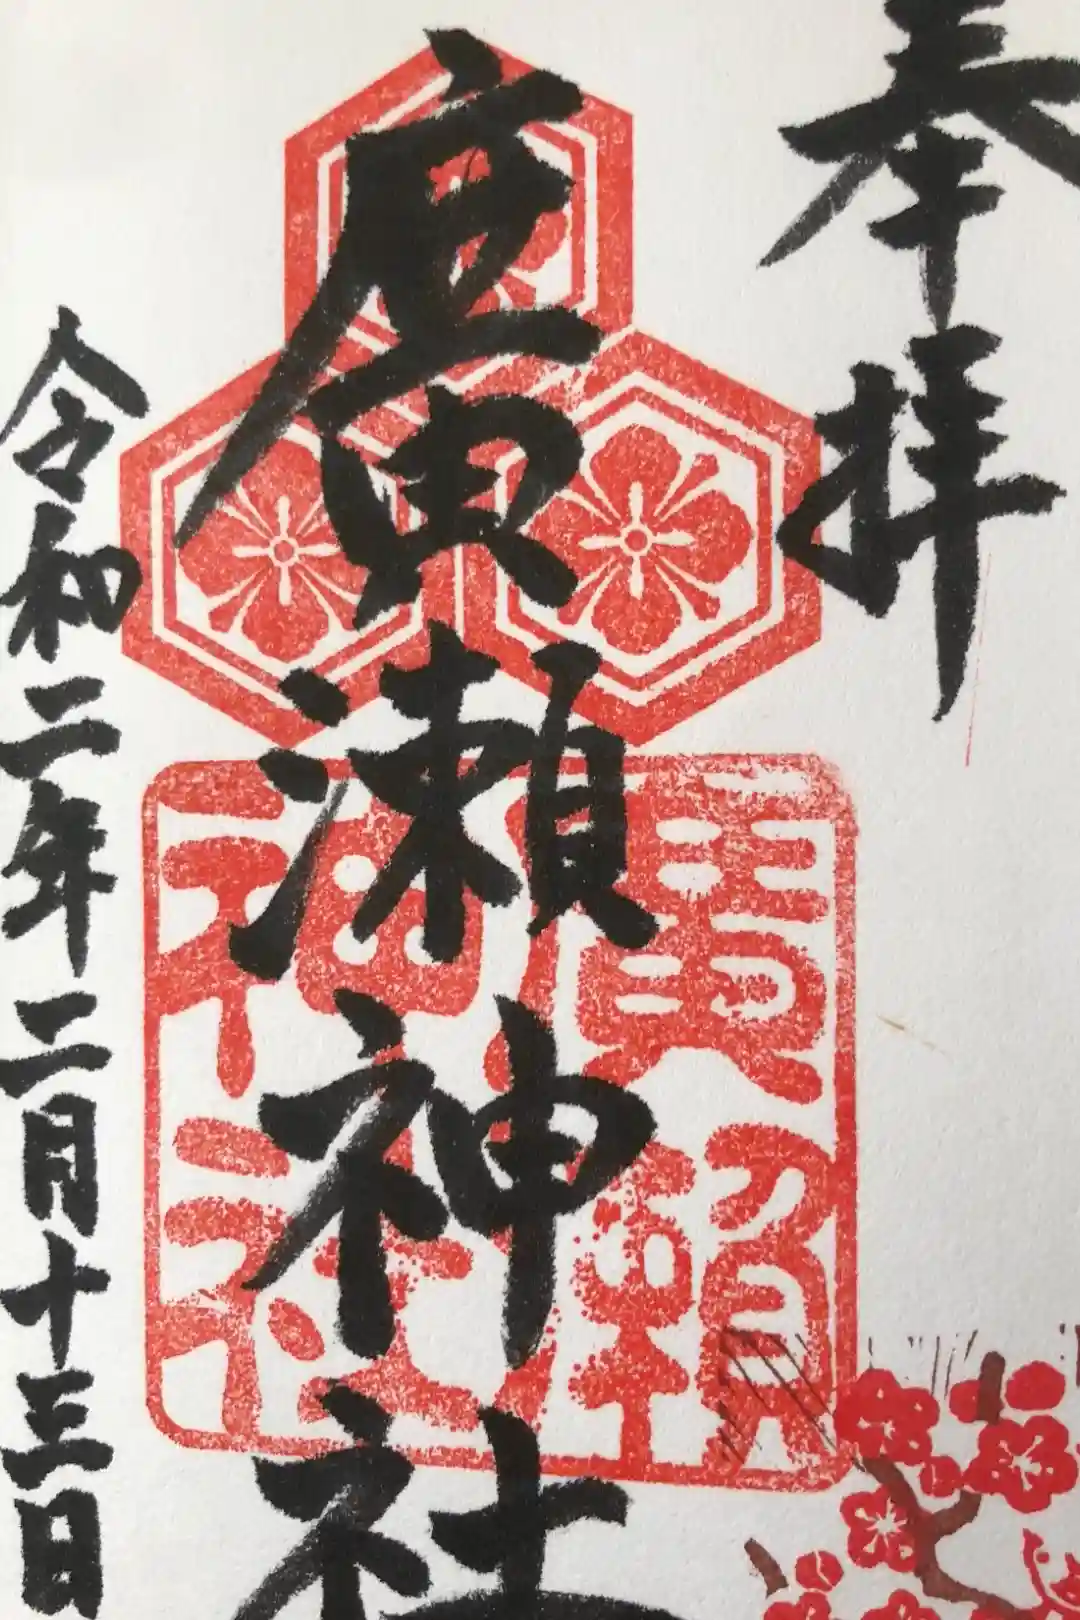 奉拝
廣瀬神社
廣瀬
神社
令和二年二月十三日